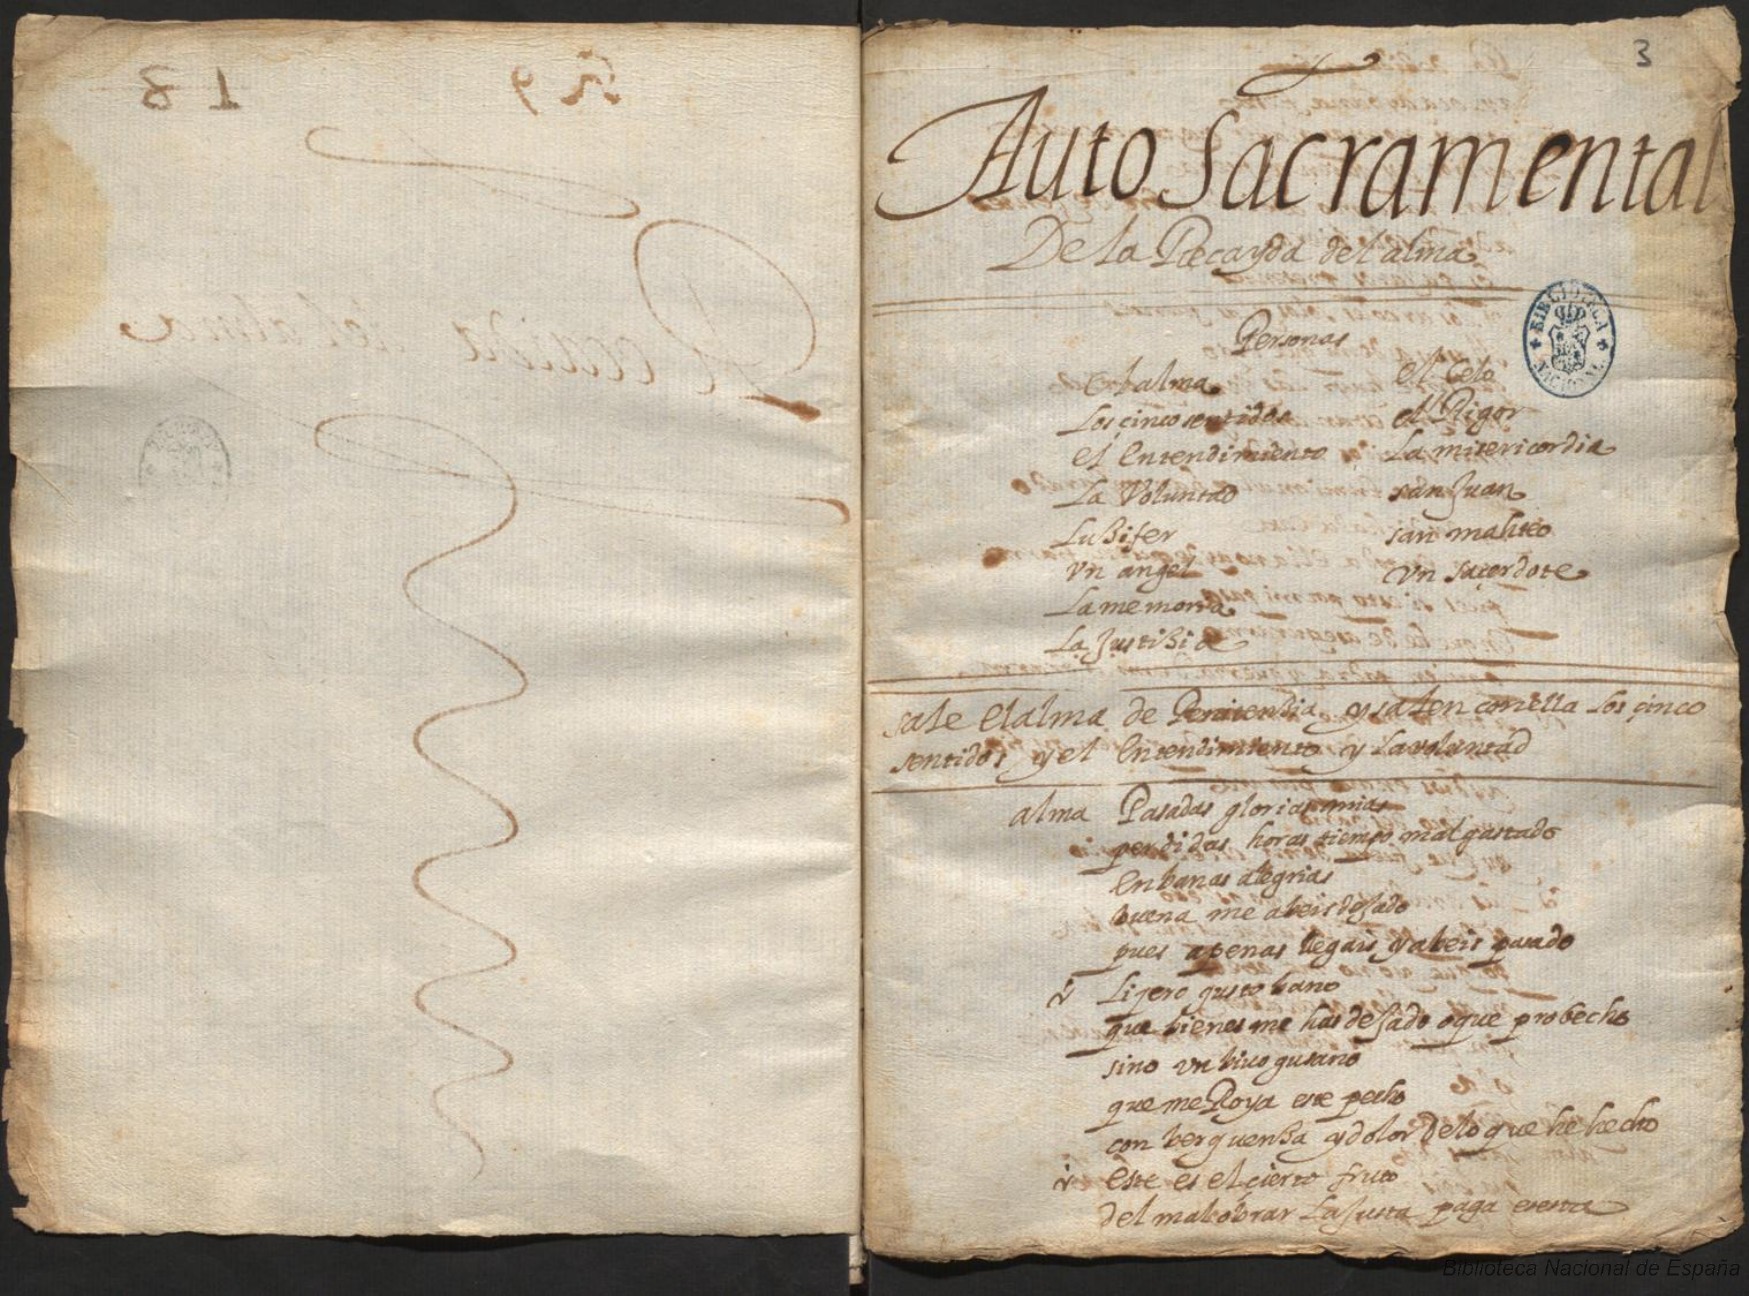 3
Auto Sacramental
De la Recayda del alma
Personas
El alma
Los çinco sentidos
el Entendimiento
La Voluntad
Lusifer
Vn angel
La memoria
La Justisia
el Celo
el Rigor
La misericordia
san Juan
san matheo
Vn saçerdote
BIBLIOTECA NACIONAL
sale el alma de Penitensia y salen con ella Los çinco
sentidos y el Entendimiento y La voluntad
alma Pasadas glorias mias
perdidas horas tiempo mal gastado
En banas alegrias
buena me abeis dejado
pues apenas llegais y abeis pasado
Lijero gusto bano
que bienes me has dejado o que probecho
sino vn bivo gusano
que me Roya este pecho
con berguensa y dolor de lo que he hecho
Este es el cierto fruto
del mal obrar La justa paga es esta
Biblioteca Nacional de España